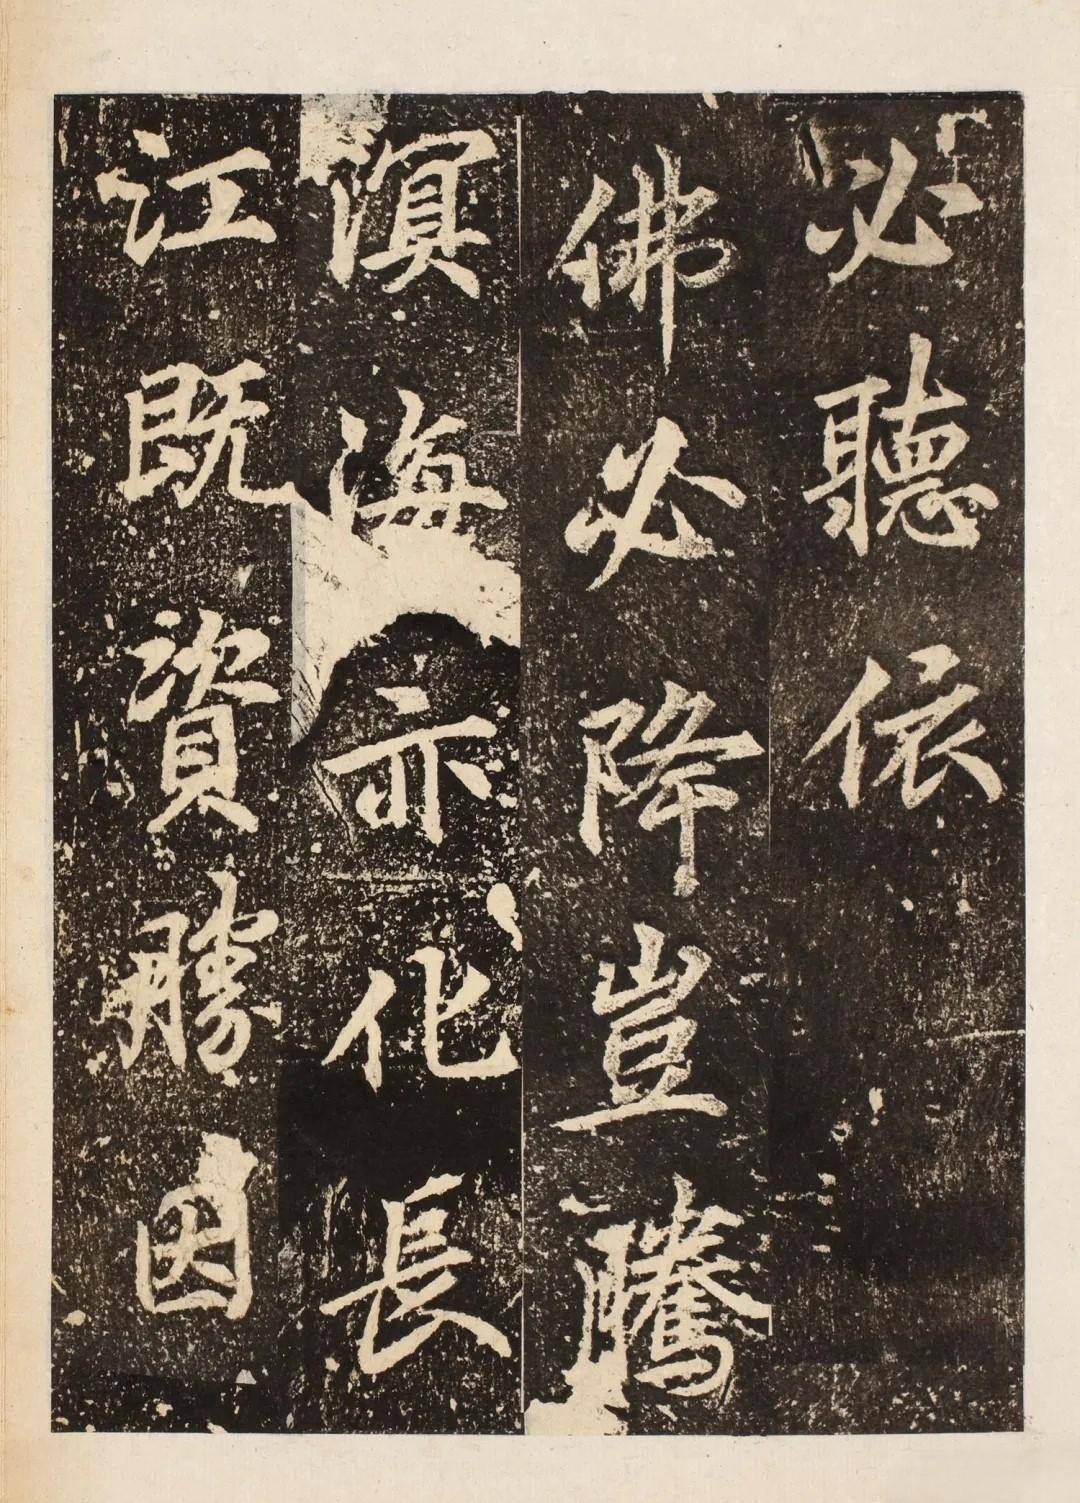 必聽依
佛必降豈騰
溟海亦化長
江既資勝因